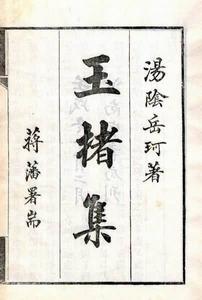 湯陰岳珂著
玉楮集
蔣藩署耑